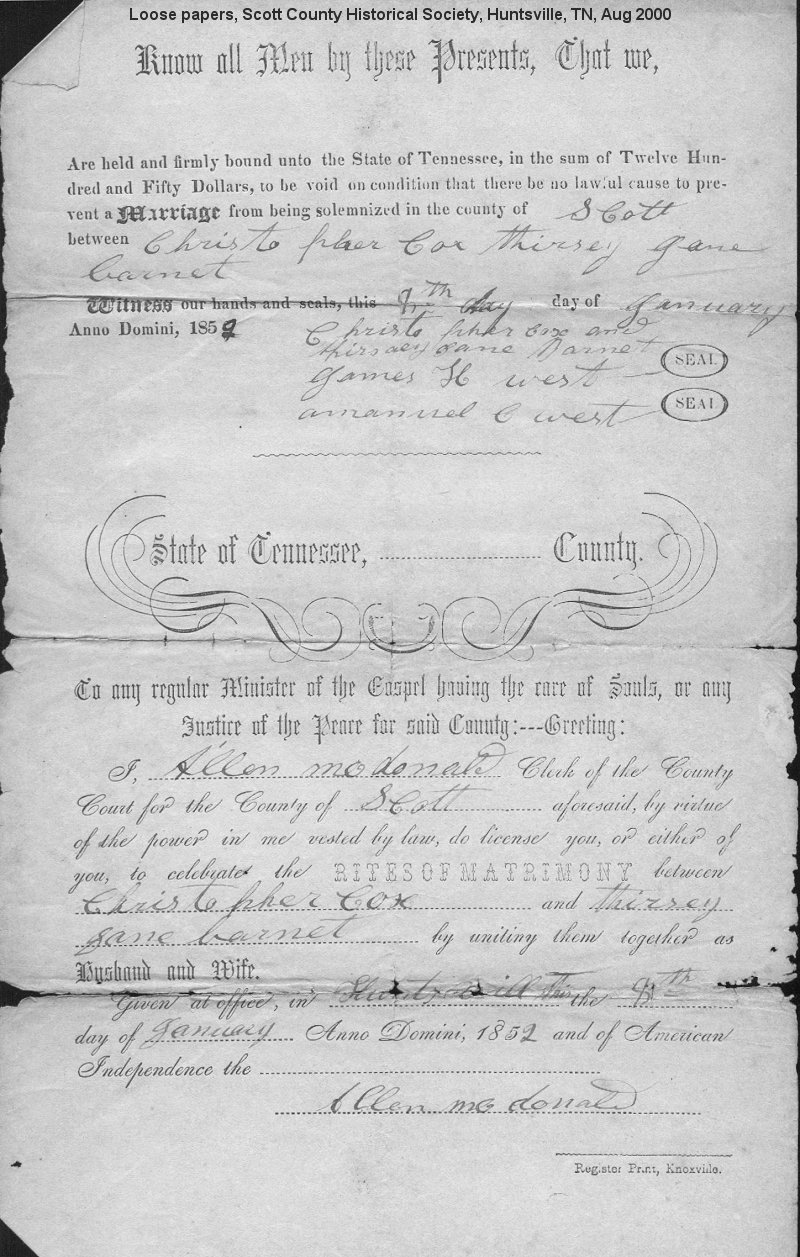 Loose papers, Scott County Historical Society, Huntsville, TN, Aug 2000
Know all Men by these Presents, That we,
Are held and firmly bound unto the State of Tennessee, in the sum of Twelve Hun-
dred and Fifty Dollars, to be void on condition that there be no lawful cause to pre-
vent a Marriage from being solemnized in the county of Scott
between Christopher Cox thirsey Jane
barnet
Witness our hands and seals, this day day of January
Anno Domini, 185
Christopher Cox and
thirsey Jane Barnet
James H west SEAL
amanuel C west SEAL
State of Tennessee, County.
To any regular Minister of the Gospel having the care of Souls, or any
Justice of the Peace for said County:---Greeting:
I, Allen mcdonald Clerk of the County
Court for the County of Scott aforesaid, by virtue
of the power in me vested by law, do license you, or either of
you, to celebrate the RITES OF MATRIMONY between
Christopher Cox and thirsey
Jane barnet by unitiny them together as
Husband and Wife.
Given at office, in the
day of January Anno Domini, 185 and of American
Independence the
Allen mcdonald
Register Print, Knoxville.